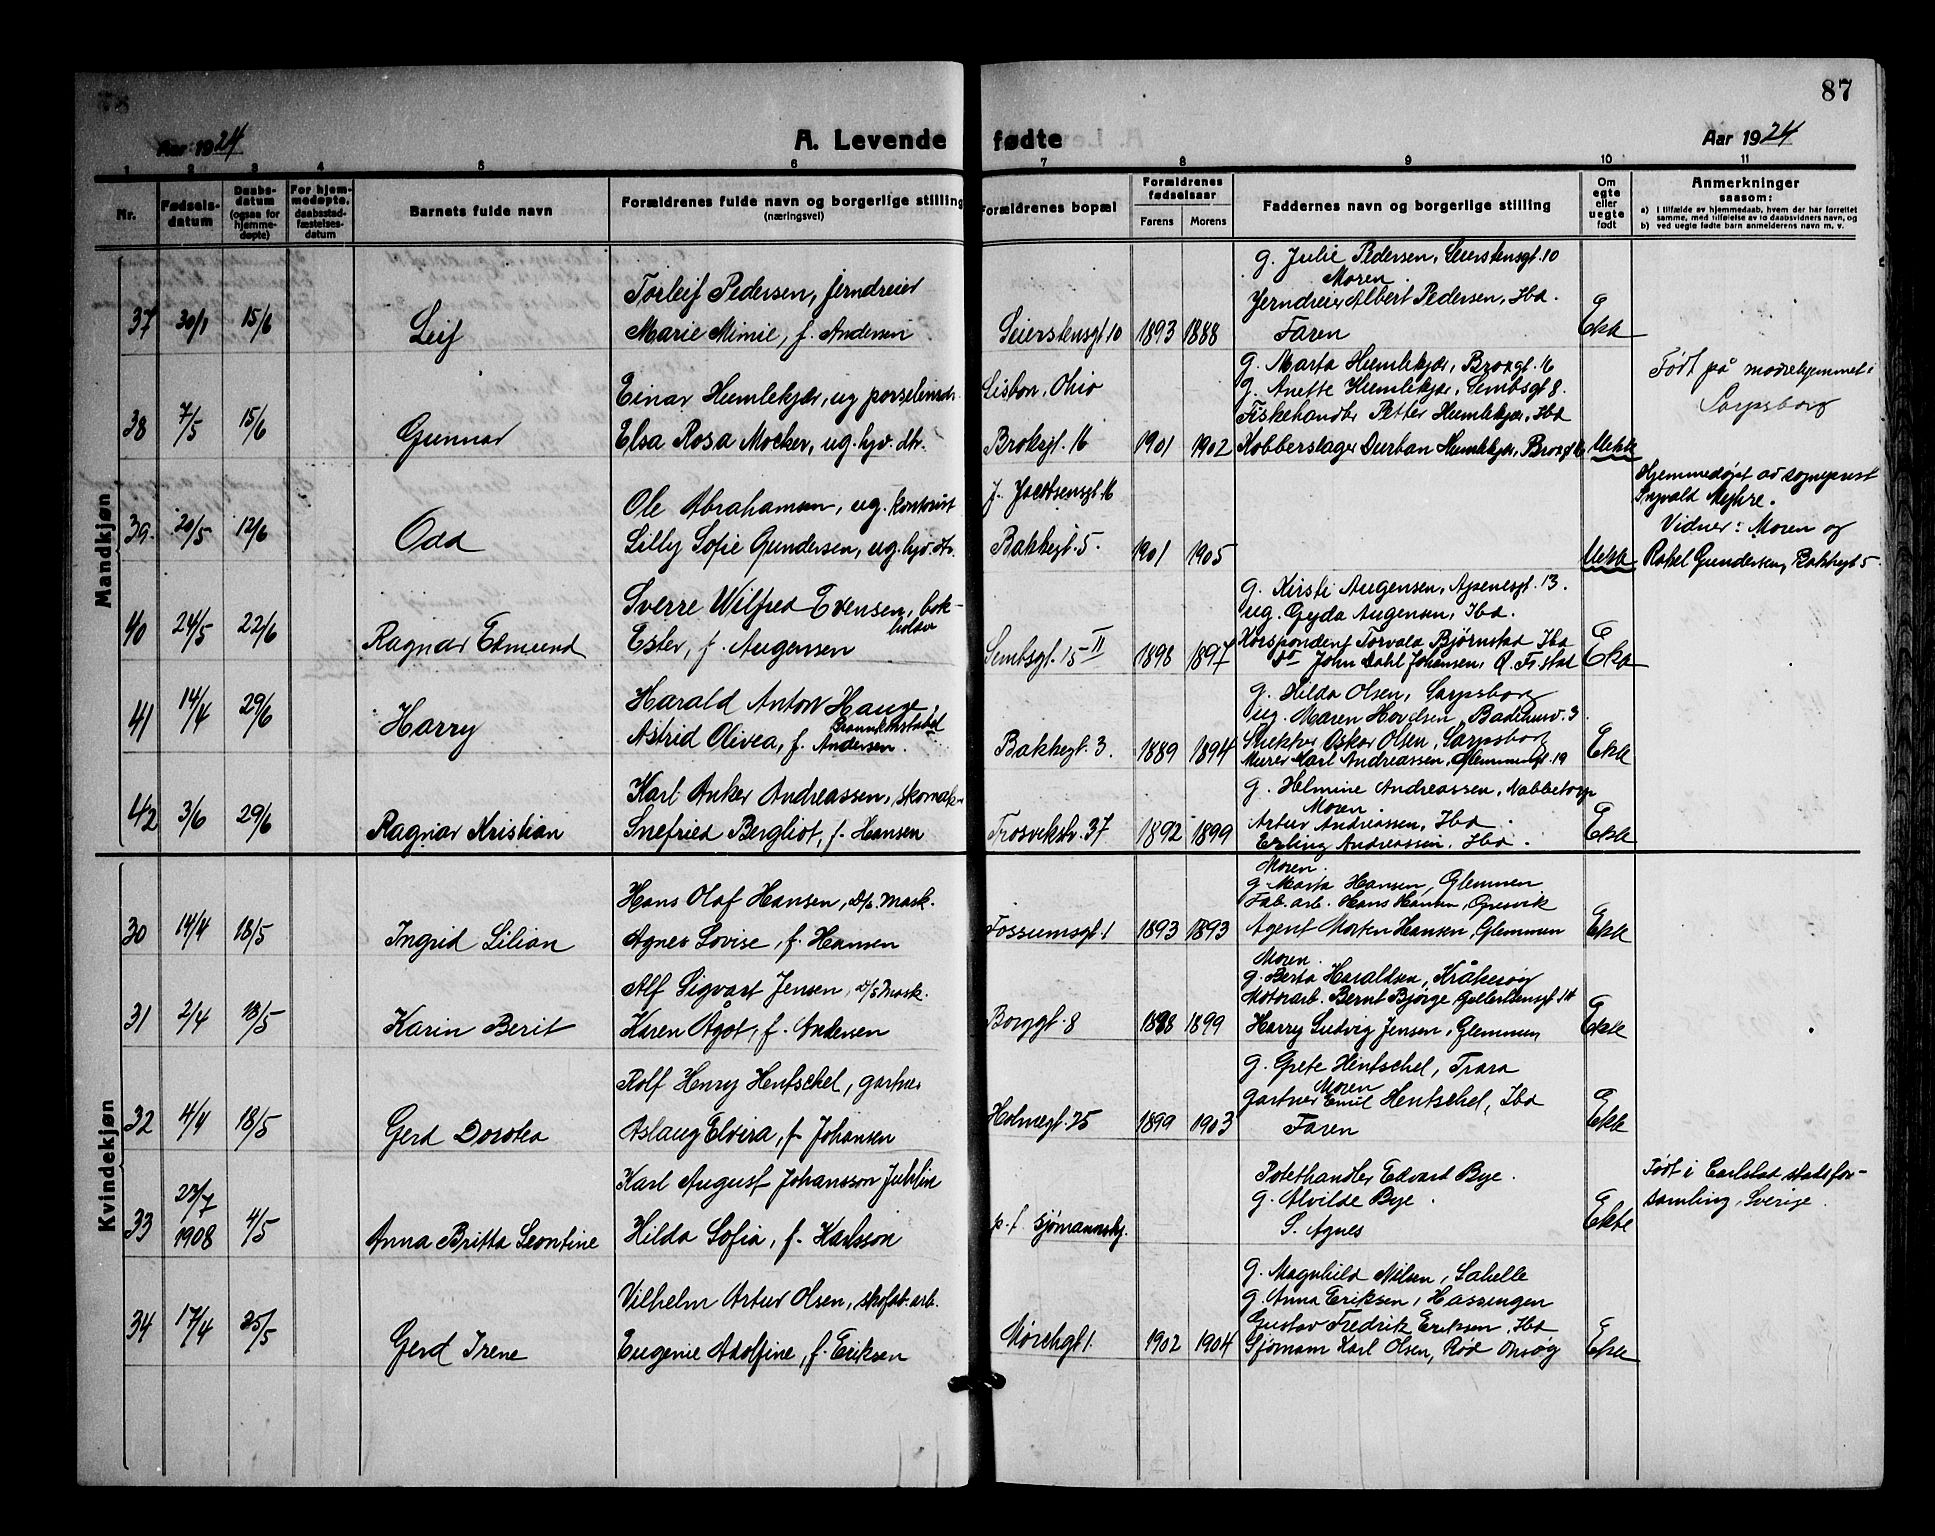 87
Aar 1924
A. Levende fødte
Aar 1924
1 2 3 4 5 6 7 8 9 10 11
Nr.
Fødsels-
datum
Daabs-
datum
(ogsaa for
hjemme-
døpte)
For hjem-
medøpte.
daabsstad-
fæstelses-
datum
Barnets fulde navn
Forældrenes fulde navn og borgerlige stilling
(næringsvei)
Forældrenes bopæl
Forældrenes
fødselsaar
Farens Morens
Faddernes navn og borgerlig stilling
Om
egte
eller
uegte
født
Anmerkninger
saasom:
a) I tilfælde av hjemmedaab, hvem der har forrettet
samme, med tilføielse av to daabsvidners navn, og
b) ved uegte fødte barn anmelderens navn m. v.
Mandkjøn
37 30/1 15/6
Leif
Torleif Pedersen, jerndreier
Marie Mimie, f. Andersen
Seierstensgt. 10 1893 1888
g. Julie Pedersen, Seierstensgt. 10
Moren
Jerndreier Albert Pedersen, Ibd.
Faren
Ekte
38 7/5 15/6
Gunnar
Einar Humlekjær, ug
Elsa Rosa Mocker, ug. hjv. dtr.
Lisbon, Ohio
Broksgt. 16 1901 1902
g. Marta Humlekjær, Broxgt. 16
g. Anette Humlekjær, Sembsgt 8.
Fiskehandler Petter Humlekjær, Ibd
Kobberslager Durban Humlekjær, Broxgt
Uekte
Født på mødrehjemmet i
Sarpsborg
39. 20/5 12/6
Odd
Ole Abrahamsen, ug. kontorist
Lilly Sofie Gundersen, ug. hjv. dtr.
J. Jacobsensgt. 16
Bakkegt. 5. 1901 1905
Uekte
Hjemmedøpt av sogneprest
Ingvald Myhre.
Vidner: Moren og
Rakel Gundersen, Bakkegt 5.
40 24/5 22/6
Ragnar Edmund
Sverre Wilfred Evensen, bok-
holder
Ester, f. Augensen
Sembsgt. 15 II 1898 1897
g. Kirsti Augensen, Apenesgt. 13.
ug. Gyda Augensen, Ibd.
Korspondent Torvald Bjørnstad Ibd
do John Dahl Johansen, Q. Fr.stad
Ekte
41 14/4 29/6
Harry
Harald Anton Hauge,
Brannkonstabel
Astrid Olivea, f. Andersen.
Bakkegt. 3. 1889 1894
g. Hilda Olsen, Sarpsborg
ug. Maren Hovelsen, Badehusv. 3
Snekker Oskar Olsen, Sarpsborg
Murer Karl Andreassen, Glemmengt. 19
Ekte
42 3/6 29/6
Ragnar Kristian
Karl Anker Andreassen, skomak-
Snefried Bergliot, f. Hansen
Trosvikstr. 37 1892 1899
g. Helmine Andreassen, Nabbetorp
Moren.
Artur Andreassen, Ibd.
Erling Andreassen, Ibd.
Ekte
Kvindekjøn
30 14/4 18/5
Ingrid Lilian
Hans Olaf Hansen, D/S. Mask.
Agnes Lovise, f. Hansen
Fossumsgt. 1 1893 1893
Moren.
g. Marta Hansen, Glemmen
Fab. arb. Hans Hansen, Gresvik
Agent Morten Hansen, Glemmen
Ekte
31 2/4 18/5
Karin Berit
Alf Sigvart Jensen, D/S Mask.
Karen Ågot, f. Andersen
Borggt. 8 1898 1899
Moren.
g. Berta Haraldsen, Kråkerøy
Motorarb. Bernt Bjørge,
Harry Ludvig Jensen, Glemmen
Ekte
32 4/4 18/5
Gerd Dorotea
Rolf Henry Hentschel, gartner
Aslaug Elvira, f. Johansen
Holmegt. 25 1899 1903
g. Grete Hentschel, Trara
Moren
Gartner Emil Hentschel, Ibd
Faren
Ekte
33 23/7 1908 4/5
Anna Britta Leontine
Karl August Johansson Juhlin
Hilda Sofia, f. Karlsson
p. t. sjømannshj.
Potethandler Edvard Bye.
g. Alvilde Bye.
S. Agnes
Ekte
Født i Carlstad stadsfor-
samling, Sverige.
34 17/4 25/5
Gerd Irene
Vilhelm Artur Olsen, skofab. arb.
Eugenie Adolfine, f. Eriksen
Mørchgt 1. 1902 1904
g. Magnhild Nilsen, Labelle
g. Anna Eriksen, Hassingen
Gustav Fredrik Eriksen, Ibd
Sjømann Karl Olsen, Rød Onsøy
Ekte